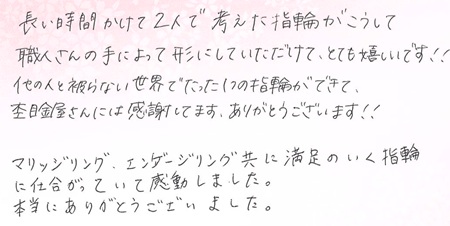 長い時間かけて2人で考えた指輪がこうして
職人さんの手によって形にしていただけて、とても嬉しいです!!
他の人と被らない世界でたった1つの指輪ができて、
杢目金屋さんには感謝してます、ありがとうございます!!
マリッジリング、エンゲージリング共に満足のいく指輪
に仕合がっていて感動しました。
本当にありがとうございました。